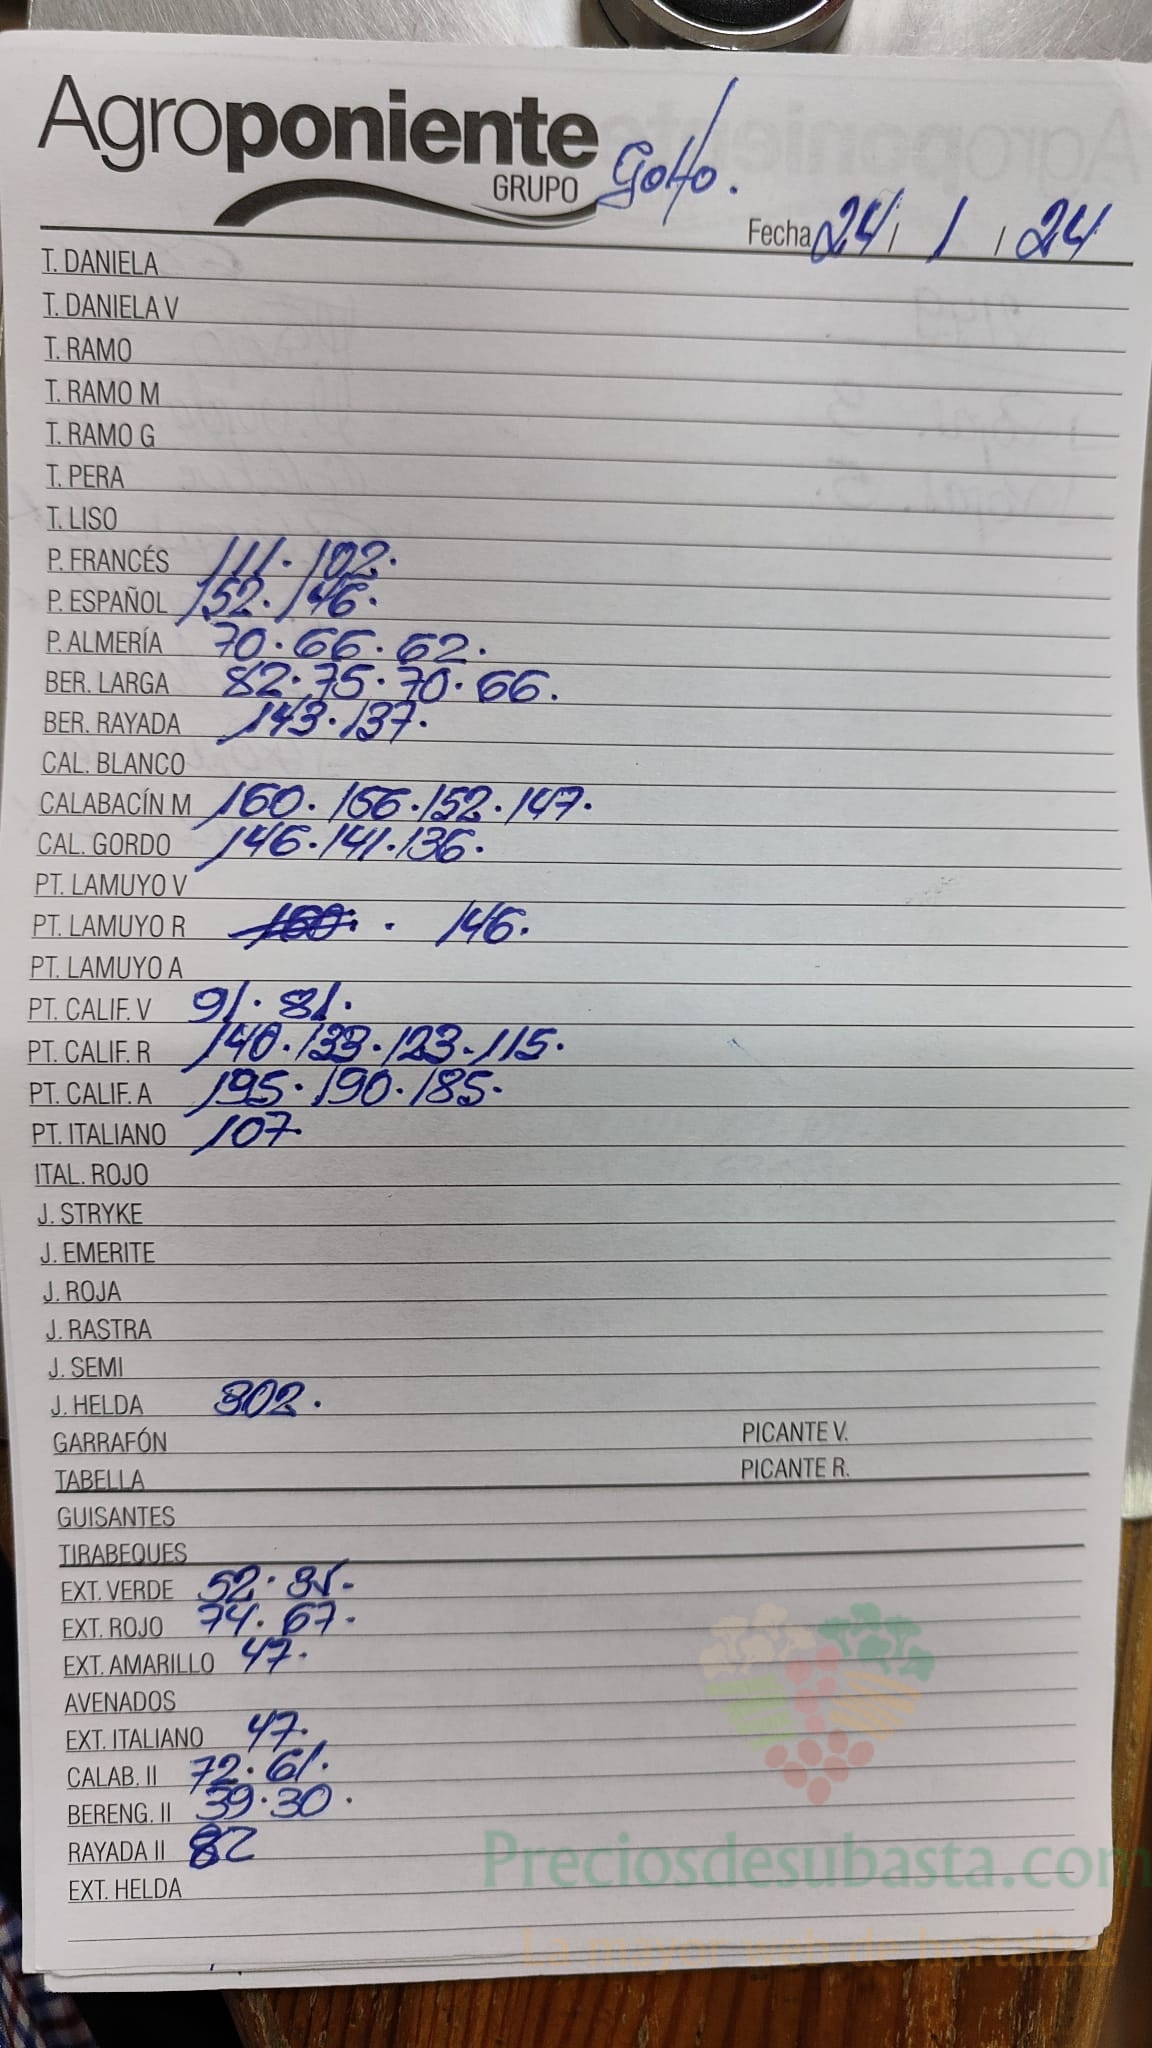 Agroponiente
GRUPO
Golfo.
Fecha 24 / 1 / 24
T. DANIELA
T. DANIELA V
T. RAMO
T. RAMO M
T. RAMO G
T. PERA
T. LISO
P. FRANCÉS 111. 102.
P. ESPAÑOL 152. 146.
P. ALMERÍA 70. 66. 62.
BER. LARGA 82. 75. 70. 66.
BER. RAYADA 143. 137.
CAL. BLANCO
CALABACÍN M 160. 156. 152. 147.
CAL. GORDO 146. 141. 136.
PT. LAMUYO V
PT. LAMUYO R 160. . 146.
PT. LAMUYO A
PT. CALIF. V 91. 81.
PT. CALIF. R 140. 133. 123. 115.
PT. CALIF. A 195. 190. 185.
PT. ITALIANO 107.
ITAL. ROJO
J. STRYKE
J. EMERITE
J. ROJA
J. RASTRA
J. SEMI
J. HELDA 302.
GARRAFÓN PICANTE V.
TABELLA PICANTE R.
GUISANTES
TIRABEQUES
EXT. VERDE 52.
EXT. ROJO 74. 67.
EXT. AMARILLO 47.
AVENADOS
EXT. ITALIANO 47.
CALAB. II 72. 61.
BERENG. II 39. 30.
RAYADA II 82
EXT. HELDA
Preciosdesubasta.com
La mayor web de hortalizas